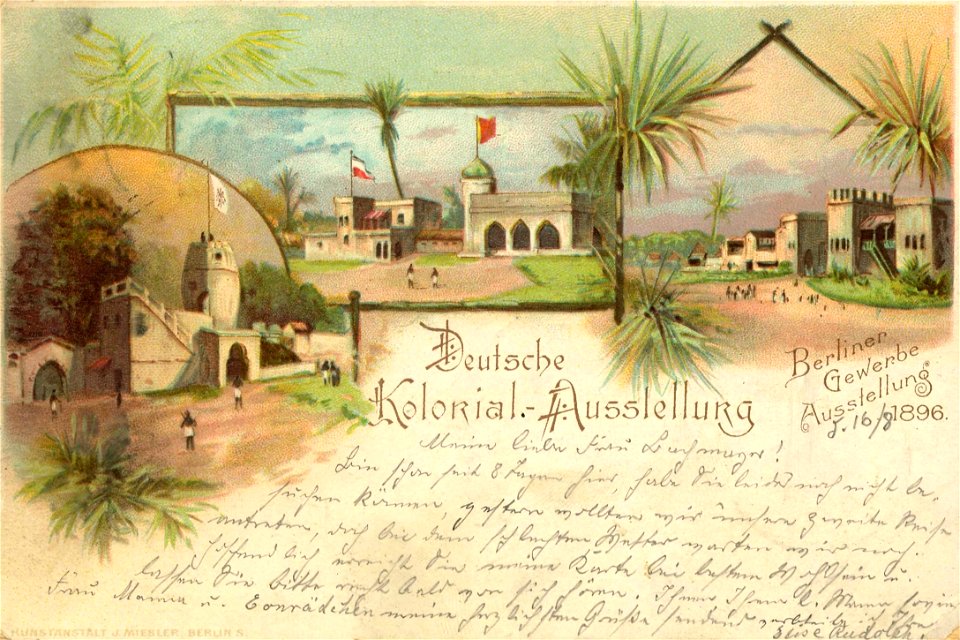 Deutsche
Kolonial.-Ausstellung
Berliner
Gewerbe
Ausstellung
1896.
d. 16/8
Meine liebe Frau Bachmayer!
Bin schon seit 8 Tagen hier, habe Sie leider noch nicht be-
suchen können, gestern wollten wir unsere zweite Reise
antreten, doch bei dem schlechten Wetter warten wir noch.
Hoffendlich erreicht Sie meine Karte bei bestem Wohlsein u.
lassen Sie bitte recht bald von sich hören. Ihnen Ihrer l. Mama
Frau Mama u. Conrädchen meine herzlichsten Grüße sendend verbleibe ich Ihre
Elise Rudolf
KUNSTANSTALT J. MIESLER, BERLIN S.